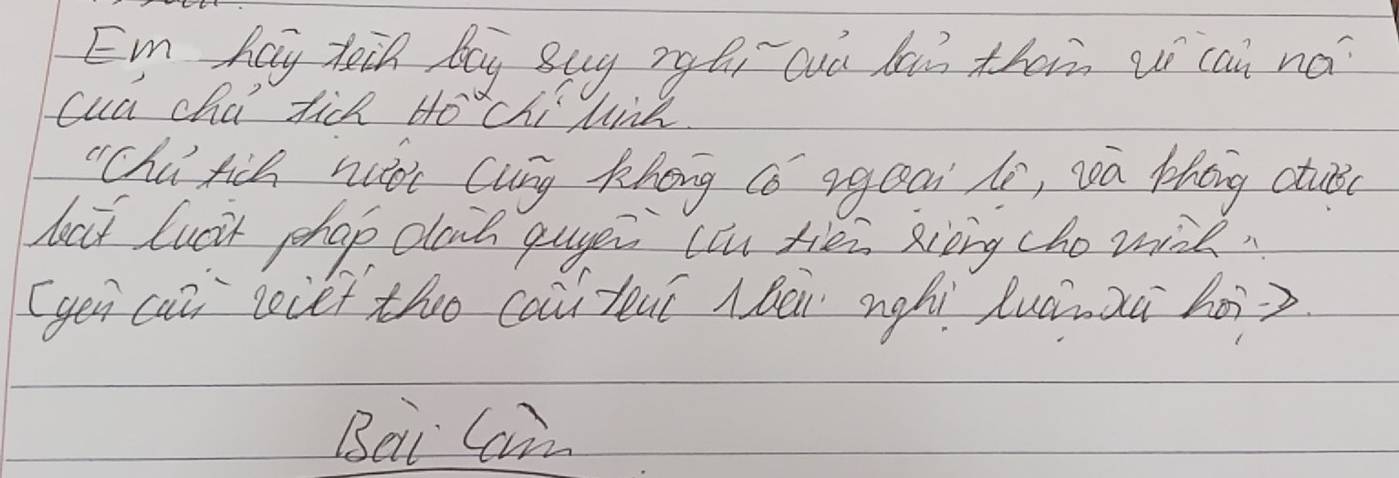 Em hãy trình bày suy nghĩ của bản thân về câu nói
của chủ tịch Hồ Chí Minh.
"Chủ tịch nước cũng không có ngoại lệ, và không được
luật pháp dành quyền ưu tiên riêng cho mình".
(yêu cầu viết theo cấu trúc 1 bài nghị luận xã hội→).
Bài Làm